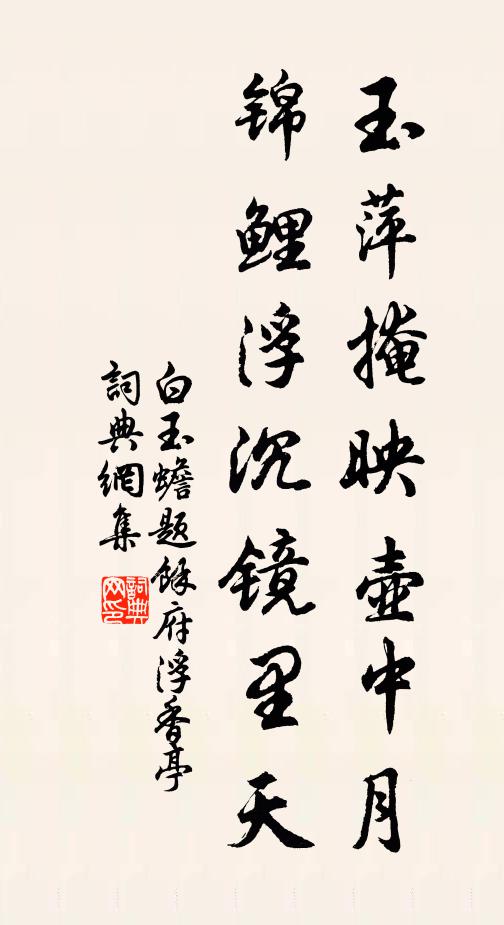 玉萍掩映壶中月
锦鲤浮沉镜里天
白玉蟾题馀府浮香亭
詞典網集
詞典網印